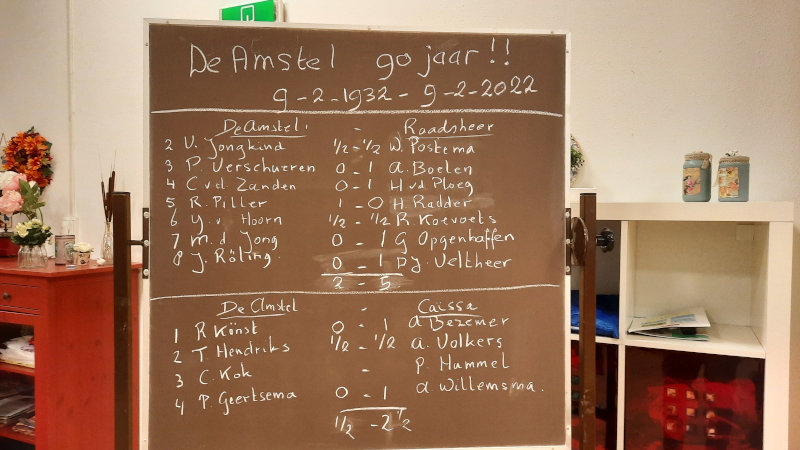 De Amstel 90 jaar!!
9-2-1932 - 9-2-2022
De Amstel - Raadsheer
2 V. Jongkind ½-½ W. Postema
3 P. Verschueren 0-1 A. Boelen
4 C vd Zanden 0-1 H vd Ploeg
5 R. Piller 1-0 H Radder
6 Y. v Hoorn ½-½ R. Koevoets
7 M. d Jong 0-1 G Opgenhaffen
8 J. Röling. 0-1 P.J. Veltheer
2-5
De Amstel - Caïssa
1 R Könst 0-1 A Bezemer
2 T Hendriks ½-½ A. Volkers
3 C. Kok - P. Hummel
4 P. Geertsema 0-1 A Willemsma.
½-2½